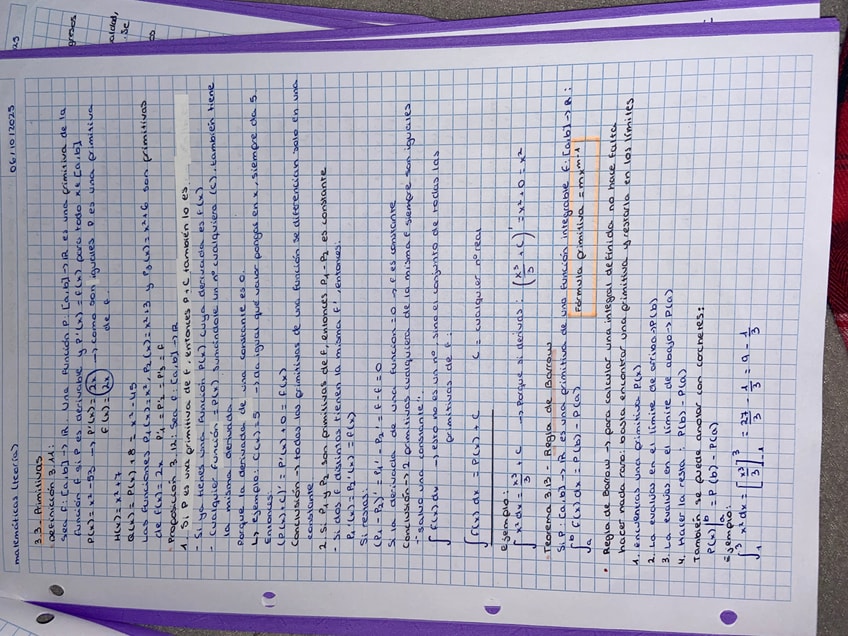 matemáticas (teoría) 06/10/2025
3.2. Primitivas
Definición 3.11:
Sea f: [a,b] → R. Una función P: [a,b] → R es una primitiva de la
función f si P es derivable y P'(x) = f(x) para todo x ∈ [a,b]
P(x) = x² - 53 → P'(x) = 2x → como son iguales P es una primitiva
f(x) = 2x de f.
H(x) = x² + 7
Q(x) = P(x) + 8 = x² - 45
Las funciones P₁(x) = x², P₂(x) = x² + 3 y P₃(x) = x² + 6 son primitivas
de f(x) = 2x P'₁ = P'₂ = P'₃ = f
Proposición 3.12: Sea f: [a,b] → R
1. Si P es una primitiva de f, entonces P + C también lo es.
- Si ya tienes una función P(x) cuya derivada es f(x)
- Cualquier función = P(x) sumándole un nº cualquiera (C), también tiene
la misma derivada
Porque la derivada de una constante es 0.
↳ Ejemplo: C(x) = 5 → da igual qué valor pongas en x, siempre da 5
Entonces:
(P(x) + C)' = P'(x) + 0 = f(x)
Conclusión → todas las primitivas de una función se diferencian solo en una
constante
2. Si P₁ y P₂ son primitivas de f, entonces P₁ - P₂ es constante
- Si dos P distintas tienen la misma f, entonces:
P₁'(x) = P₂'(x) = f(x)
Si restas:
(P₁ - P₂)' = P₁' - P₂' = f - f = 0
Si la derivada de una función = 0 → f es constante
Conclusión → 2 primitivas cualquiera de la misma f siempre son iguales
"salvo una constante".
∫ f(x) dx → esto no es un nº, sino el conjunto de todas las
primitivas de f:
∫ f(x) dx = P(x) + C C = cualquier nº real
Ejemplo:
∫ x² dx = x³/3 + C → Porque si derivas: (x³/3 + C)' = x² + 0 = x²
Teorema 3.13 - Regla de Barrow
Si P: [a,b] → R es una primitiva de una función integrable f: [a,b] → R:
∫ₐᵇ f(x) dx = P(b) - P(a) Fórmula primitiva = mx^m-1
• Regla de Barrow → para calcular una integral definida no hace falta
hacer nada raro: basta encontrar una primitiva y restarla en los límites
1. Encuentras una primitiva P(x)
2. La evalúas en el límite de arriba → P(b)
3. La evalúas en el límite de abajo → P(a)
4. Hacer la resta: P(b) - P(a)
También se puede anotar con corchetes:
P(x)|ₐᵇ = P(b) - P(a)
Ejemplo:
∫₁³ x² dx = [x³/3]³₁ = 27/3 - 1/3 = 9 - 1/3